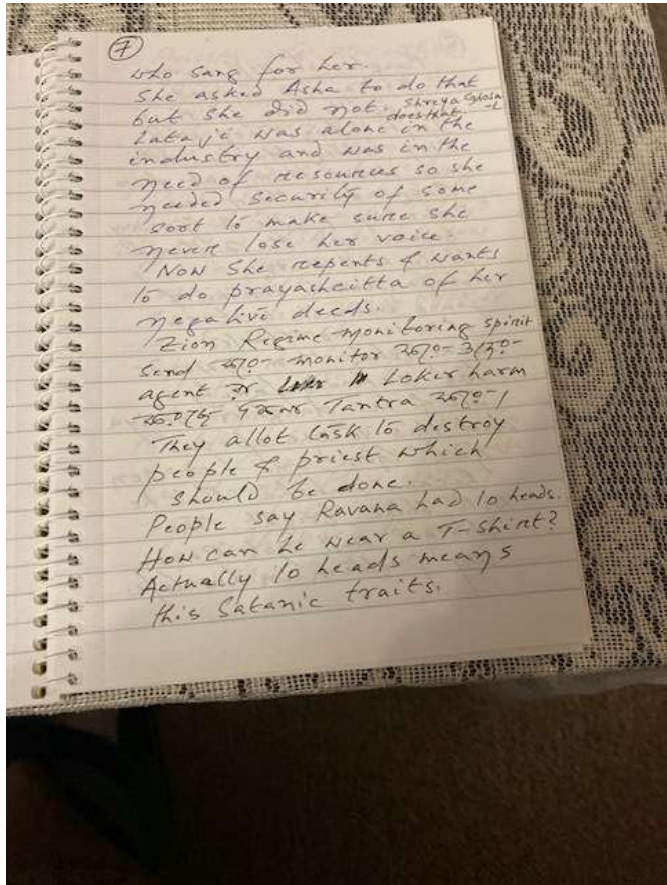 7
who sang for her.
She asked Asha to do that
but she did not. Shreya Ghosa
does that -l
Lataji was alone in the
industry and was in the
need of resources so she
needed security of some
sort to make sure she
never lose her voice.
Now She repents & wants
to do prayashcitta of her
negative deeds.
Zion Regime monitoring spirit
send monitor
agent Loker harm
Tantra
They allot task to destroy
people & priest which
should be done.
People say Ravana had 10 heads.
How can he wear a T-Shirt?
Actually 10 heads means
this Satanic traits.